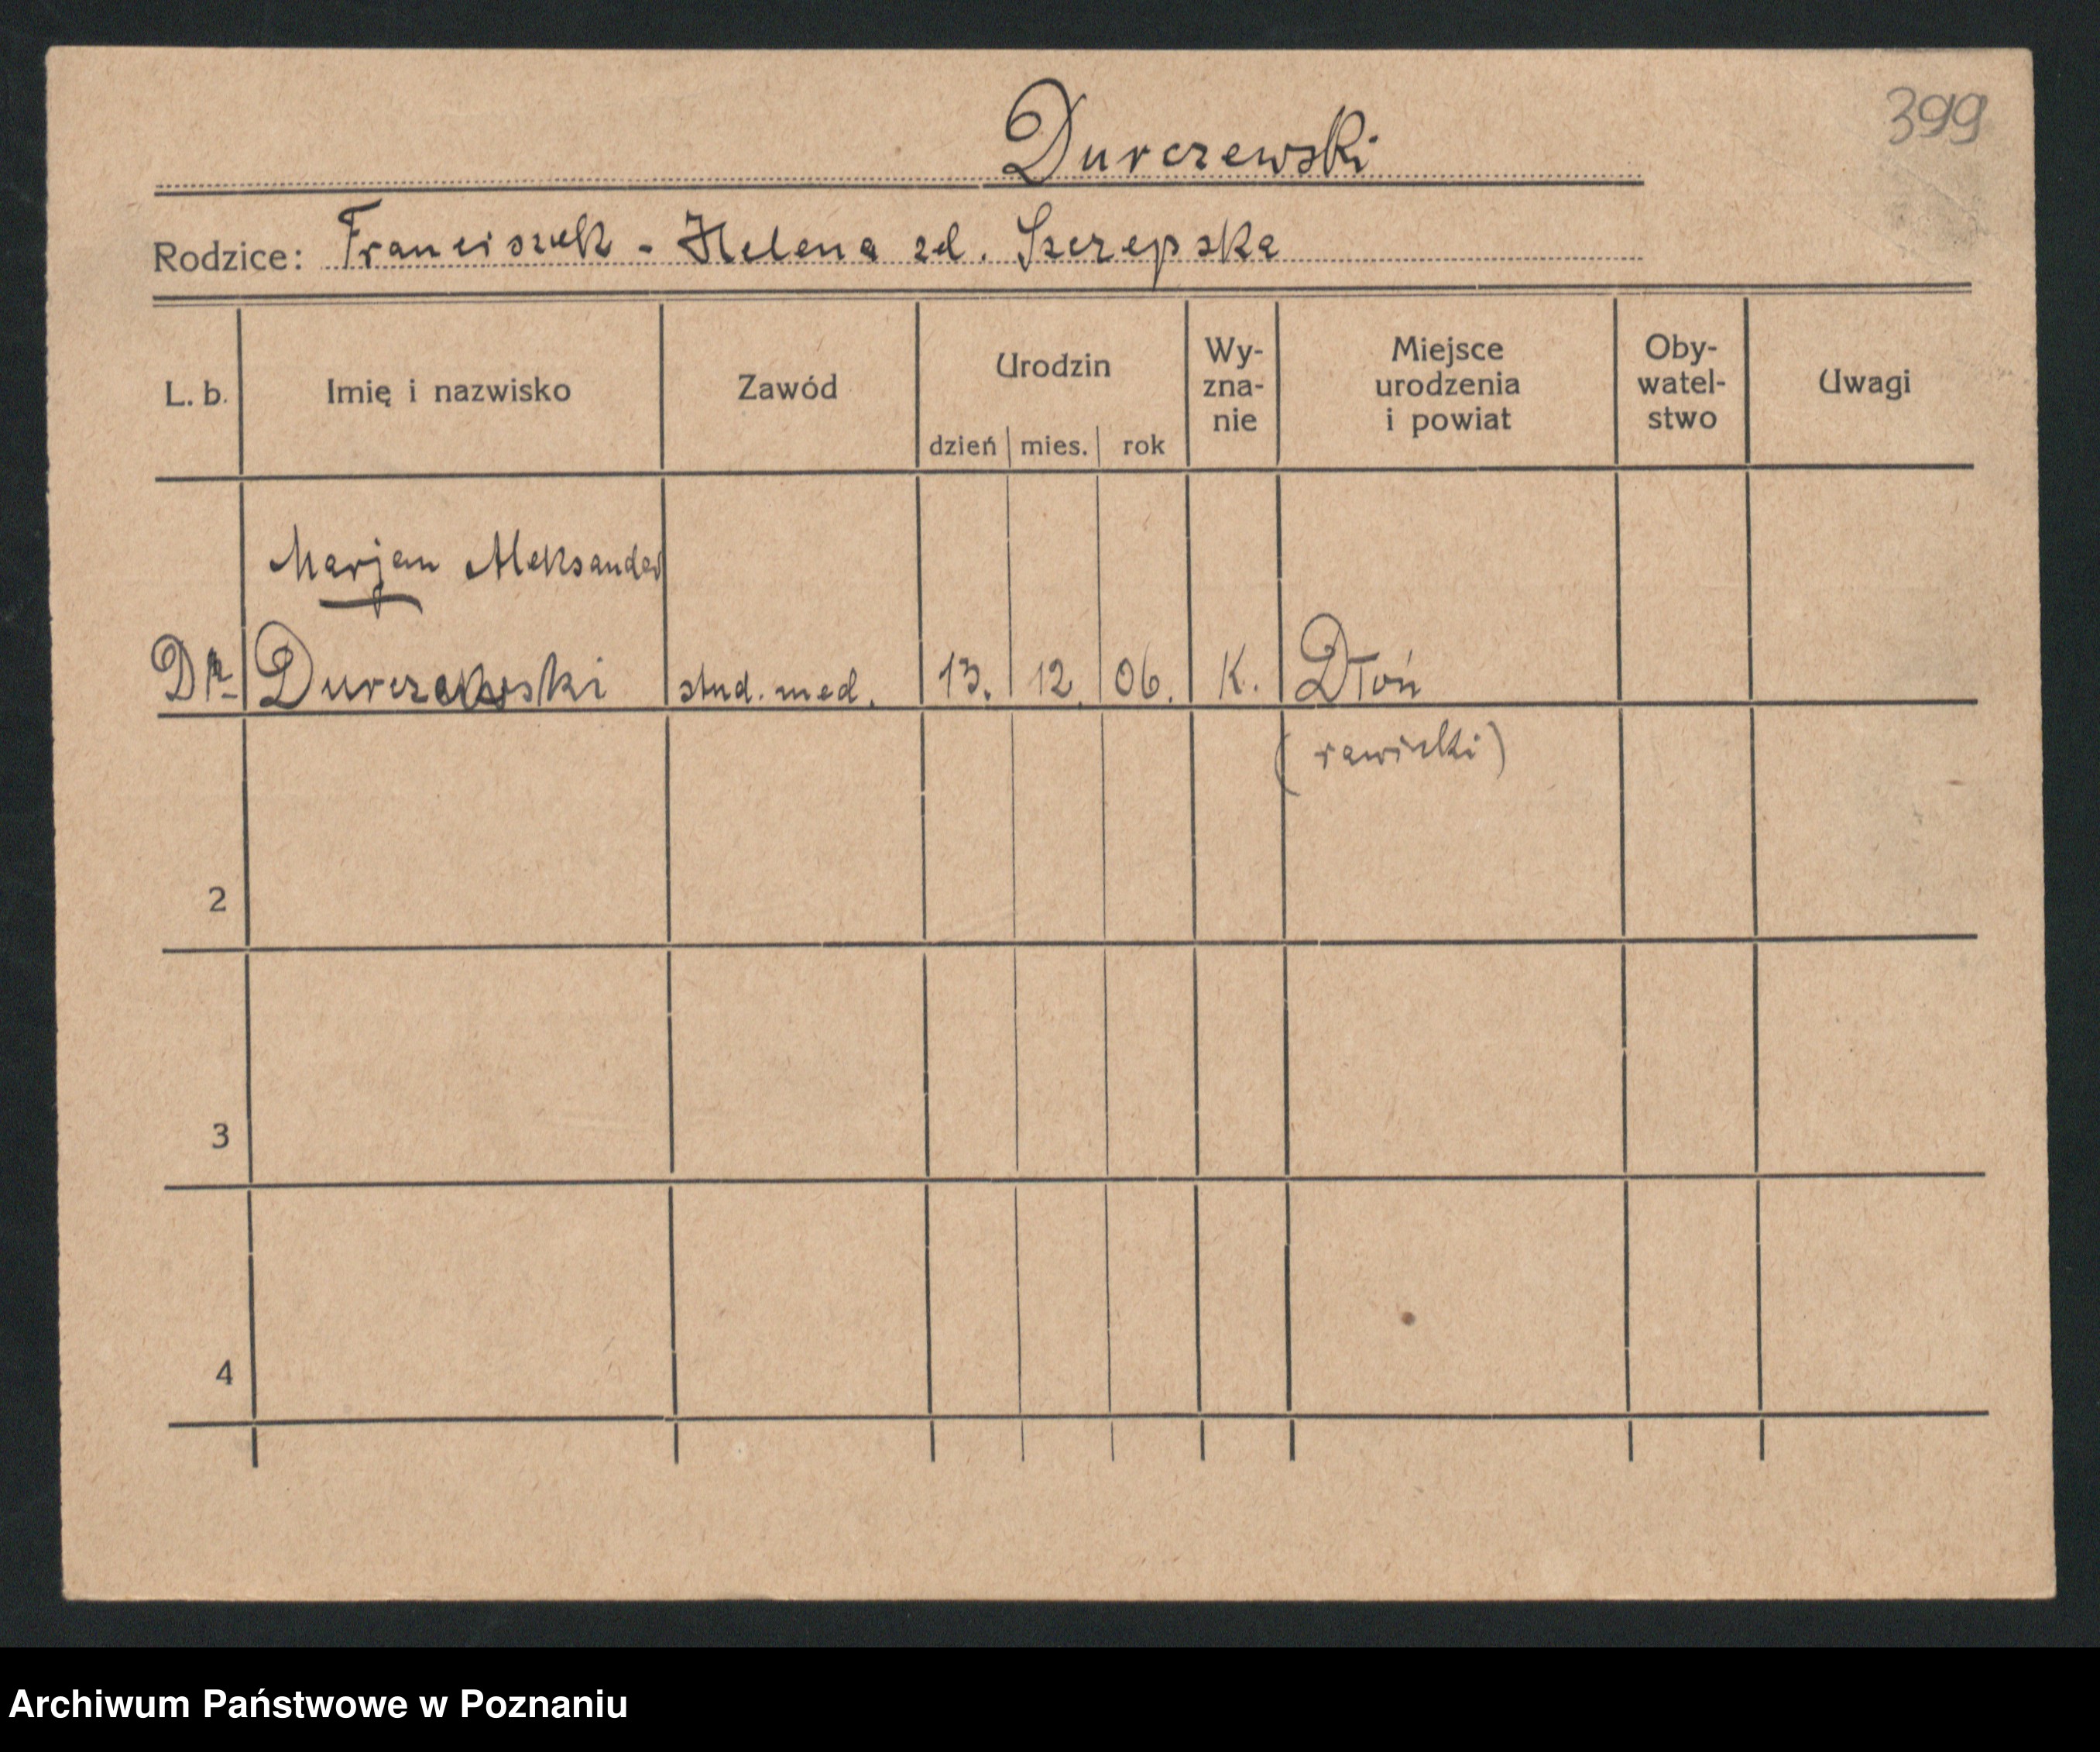 399
Durczewski
Rodzice: Franciszek - Helena zd. Szczepska
L. b. Imię i nazwisko Zawód Urodzin dzień mies. rok Wy-zna-nie Miejsce urodzenia i powiat Oby-watel-stwo Uwagi
Marjan Aleksander
Dr Durczewski stud. med. 13. 12. 06. K. Dłoń
(rawicki)
2
3
4
Archiwum Państwowe w Poznaniu